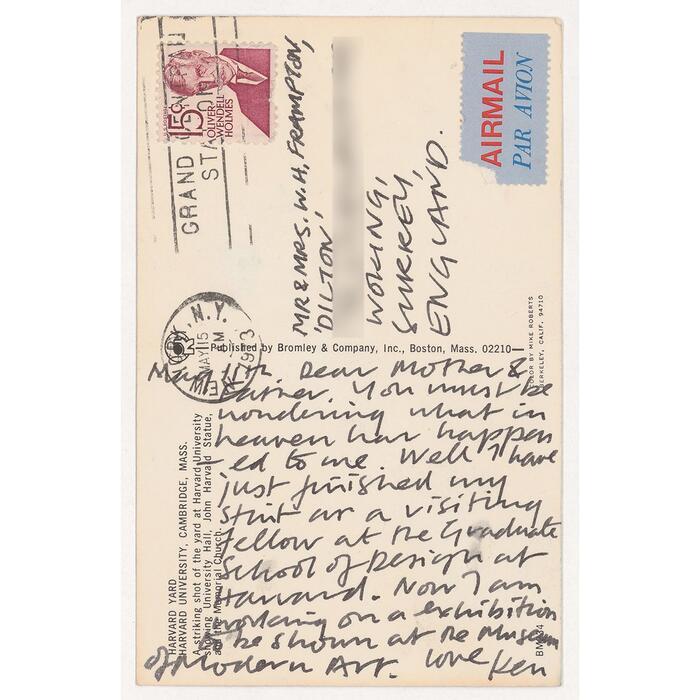 15¢
OLIVER
WENDELL
HOLMES
GRAND
STA
MR & MRS. W. H. FRAMPTON,
'DILTON',
WOKING,
SURREY,
ENGLAND.
AIRMAIL
PAR AVION
N.Y.
MAY 15
Published by Bromley & Company, Inc., Boston, Mass. 02210
COLOR BY MIKE ROBERTS
BERKELEY, CALIF. 94710
HARVARD YARD
HARVARD UNIVERSITY, CAMBRIDGE, MASS.
A striking shot of the yard at Harvard University
showing University Hall, John Harvard Statue,
and the Memorial Church.
May 11th Dear Mother &
Father. You must be
wondering what in
heaven has happen
'ed to me. Well I have
just finished my
stint as a visiting
fellow at the Graduate
School of Design at
Harvard. Now I am
working on a exhibition
to be shown at the Museum
of Modern Art. love Ken